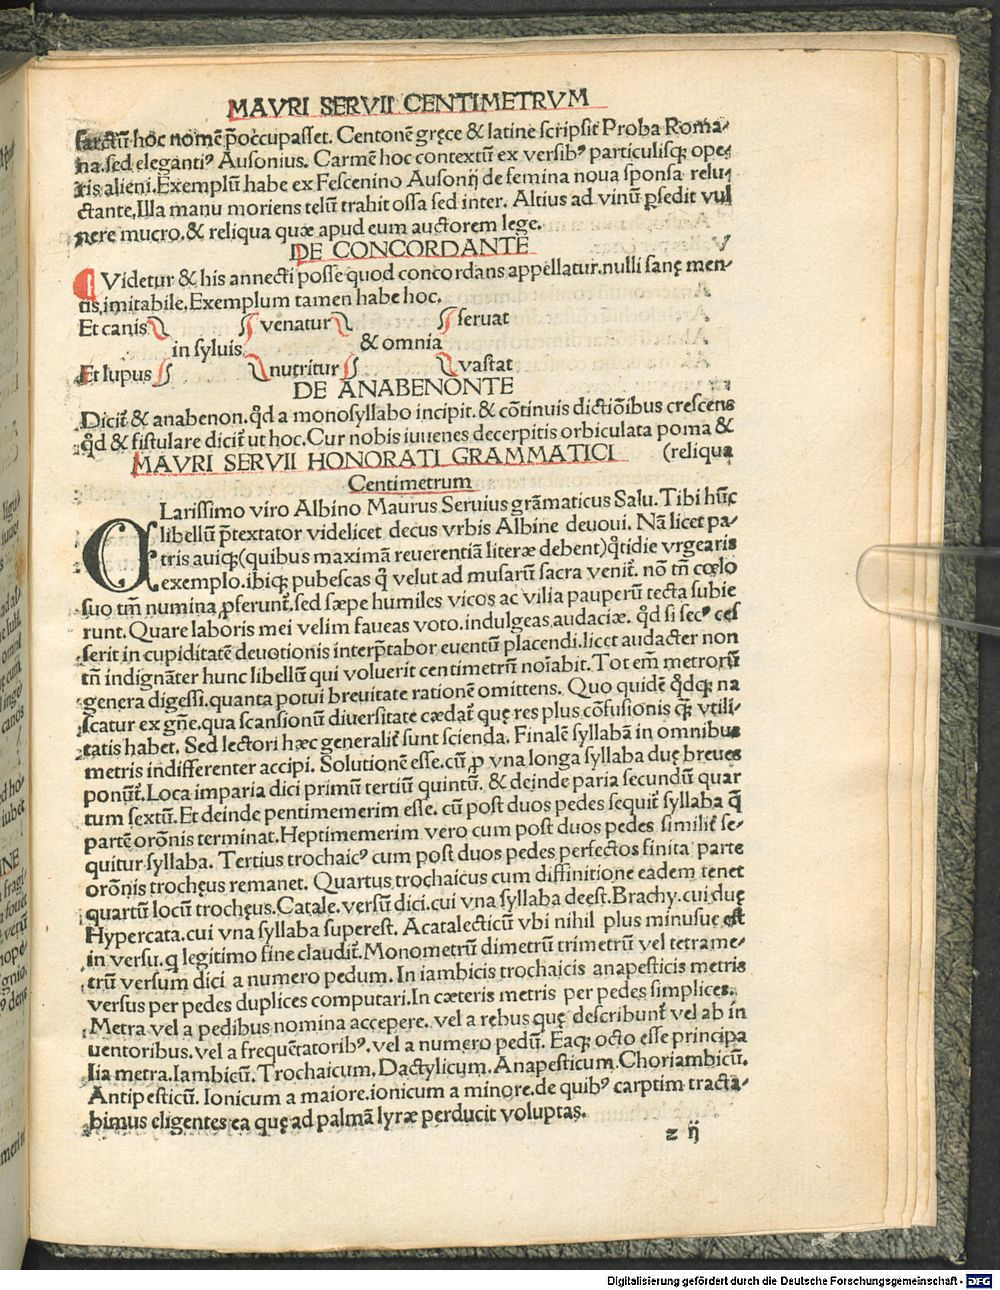 MAVRI SERVII CENTIMETRVM
sarctū hoc nomē p̄occupasset. Centonē gręce & latine scripsit Proba Roma⸗
na.sed elegantiꝰ Ausonius. Carmē hoc contextū ex versibꝰ particulisqꝫ ope⸗
ris alieni.Exemplū habe ex Fescenino Ausonij de femina noua sponsa relu⸗
ctante.Illa manu moriens telū trahit ossa sed inter. Altius ad vinū ꝑsedit vul
nere mucro.& reliqua quæ apud eum auctorem lege.
DE CONCORDANTE
Videtur & his annecti posse quod concordans appellatur.nulli sanę men⸗
tis imitabile.Exemplum tamen habe hoc.
Et canis venatur seruat
in syluis & omnia
Et lupus nutritur vastat
DE ANABENONTE
Dicit̃ & anabenon.qd̄ a monosyllabo incipit.& cōtinuis dictiōibus crescens
qd̄ & fistulare dicit̃ ut hoc.Cur nobis iuuenes decerpitis orbiculata poma &
MAVRI SERVII HONORATI GRAMMATICI (reliqua
Centimetrum
CLarissimo viro Albino Maurus Seruius grāmaticus Salu. Tibi hūc
libellū p̄textator videlicet decus vrbis Albine deuoui. Nā licet pa⸗
tris auiqꝫ(quibus maximā reuerentiā literæ debent)qt̄idie vrgearis
exemplo.ibiqꝫ pubescas q̄ velut ad musarū sacra venit̃. nō tn̄ cœlo
suo tm̄ numina ꝓferunt̃.sed sæpe humiles vicos ac vilia pauperū tecta subie
runt. Quare laboris mei velim faueas voto.indulgeas audaciæ. qd̄ si secꝰ ces
serit in cupiditatē deuotionis interp̄tabor euentū placendi.licet audacter non
tn̄ indignāter hunc libellū qui voluerit centimetrū noīabit. Tot em̄ metrorū
genera digessi.quanta potui breuitate rationē omittens. Quo quidē qd̄qꝫ na
scatur ex gn̄e.qua scansionū diuersitate cædat̃ quę res plus cōfusionis qꝫ vtili⸗
tatis habet. Sed lectori hæc generalit̃ sunt scienda. Finalē syllabā in omnibus
metris indifferenter accipi. Solutionē esse.cū ꝓ vna longa syllaba duę breues
ponūt̃.Loca imparia dici primū tertiū quintū. & deinde paria secundū quar
tum sextū.Et deinde pentimemerim esse. cū post duos pedes sequit̃ syllaba q̄
partē orōnis terminat.Heptimemerim vero cum post duos pedes similit̃ se⸗
quitur syllaba. Tertius trochaicꝰ cum post duos pedes perfectos finita parte
orōnis trochęus remanet. Quartus trochaicus cum diffinitione eadem tenet
quartū locū trochęus.Catale.versū dici.cui vna syllaba deest.Brachy.cui duę
Hypercata.cui vna syllaba superest. Acatalecticū vbi nihil plus minusue est
in versu.q legitimo fine claudit̃. Monometrū dimetrū trimetrū vel tetrame⸗
trū versum dici a numero pedum. In iambicis trochaicis anapesticis metris
versus per pedes duplices computari.In cæteris metris per pedes simplices.
Metra vel a pedibus nomina accepere. vel a rebus quę describunt̃ vel ab in
uentoribus.vel a frequētatoribꝰ.vel a numero pedū. Eaqꝫ octo esse principa
lia metra.Iambicū.Trochaicum.Dactylicum.Anapesticum.Choriambicū.
Antipesticū. Ionicum a maiore.ionicum a minore.de quibꝰ carptim tracta⸗
bimus eligentes ea quę ad palmā lyræ perducit voluptas.
z ij
Digitalisierung gefördert durch die Deutsche Forschungsgemeinschaft - DFG